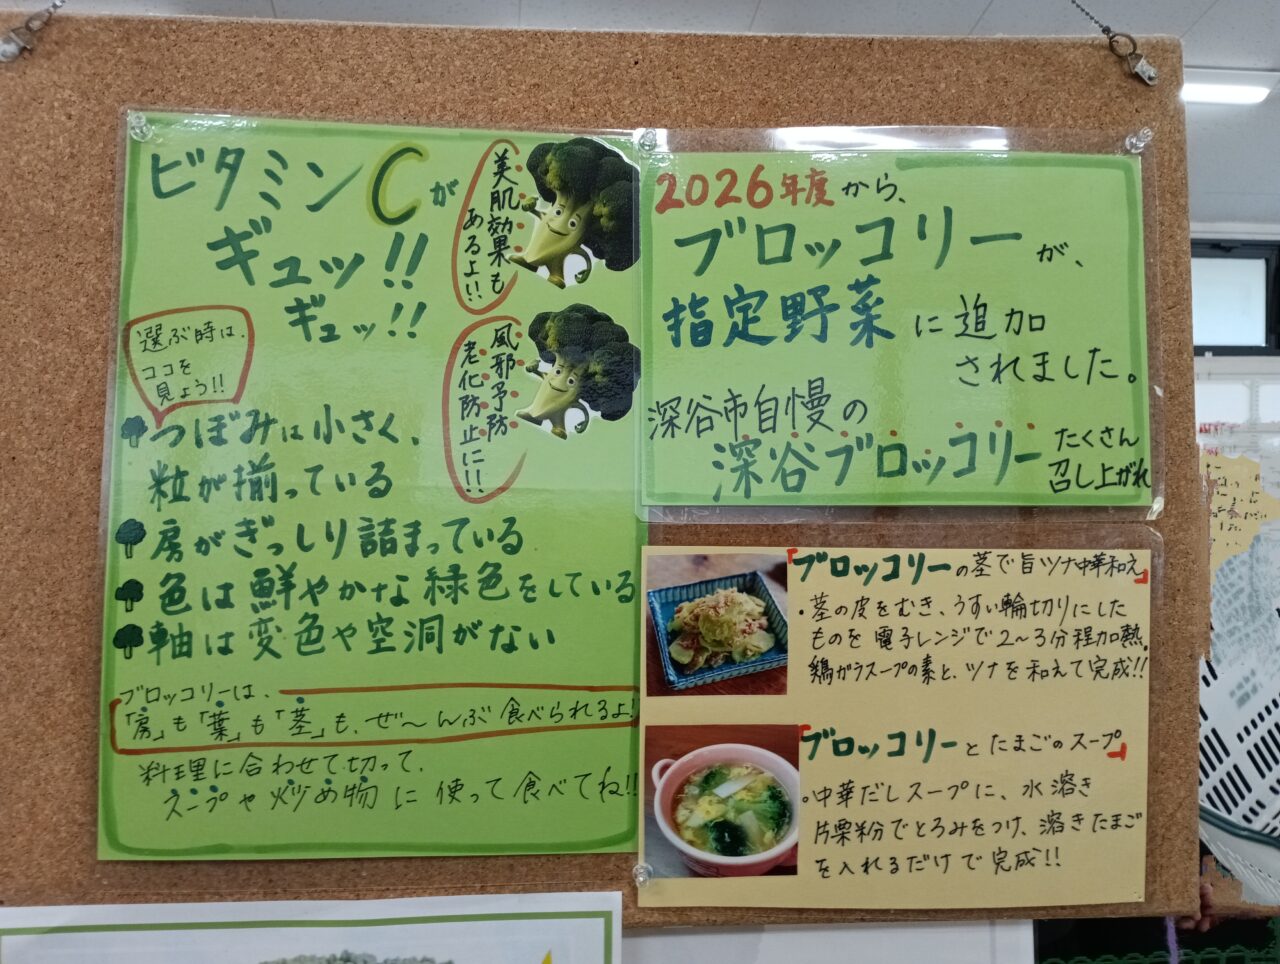 ビタミンCが
ギュッ!!
ギュッ!!
美肌効果も
あるよ!!
風邪予防
老化防止に!!
選ぶ時は、
ココを
見よう!!
つぼみは小さく、
粒が揃っている
房がぎっしり詰まっている
色は鮮やかな緑色をしている
軸は変色や空洞がない
ブロッコリーは、
「房」も「葉」も「茎」も、ぜ〜んぶ食べられるよ!
料理に合わせて切って、
スープや炒め物に使って食べてね!!
2026年度から、
ブロッコリーが、
指定野菜に追加
されました。
深谷市自慢の
深谷ブロッコリー
たくさん
召し上がれ
「ブロッコリーの茎で旨ツナ中華和え」
・茎の皮をむき、うすい輪切りにした
ものを電子レンジで2〜3分程加熱。
鶏ガラスープの素と、ツナを和えて完成!!
「ブロッコリーとたまごのスープ」
・中華だしスープに、水溶き
片栗粉でとろみをつけ、溶きたまご
を入れるだけで完成!!